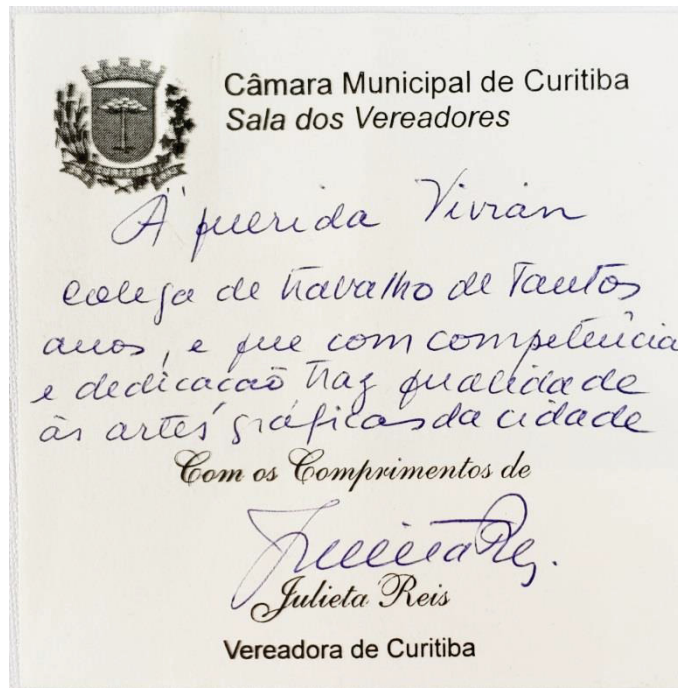 Câmara Municipal de Curitiba
Sala dos Vereadores
À querida Vivian
colega de trabalho de tantos
anos, e que com competência
e dedicação traz qualidade
às artes gráficas da cidade
Com os Comprimentos de
Julieta Reis.
Julieta Reis
Vereadora de Curitiba